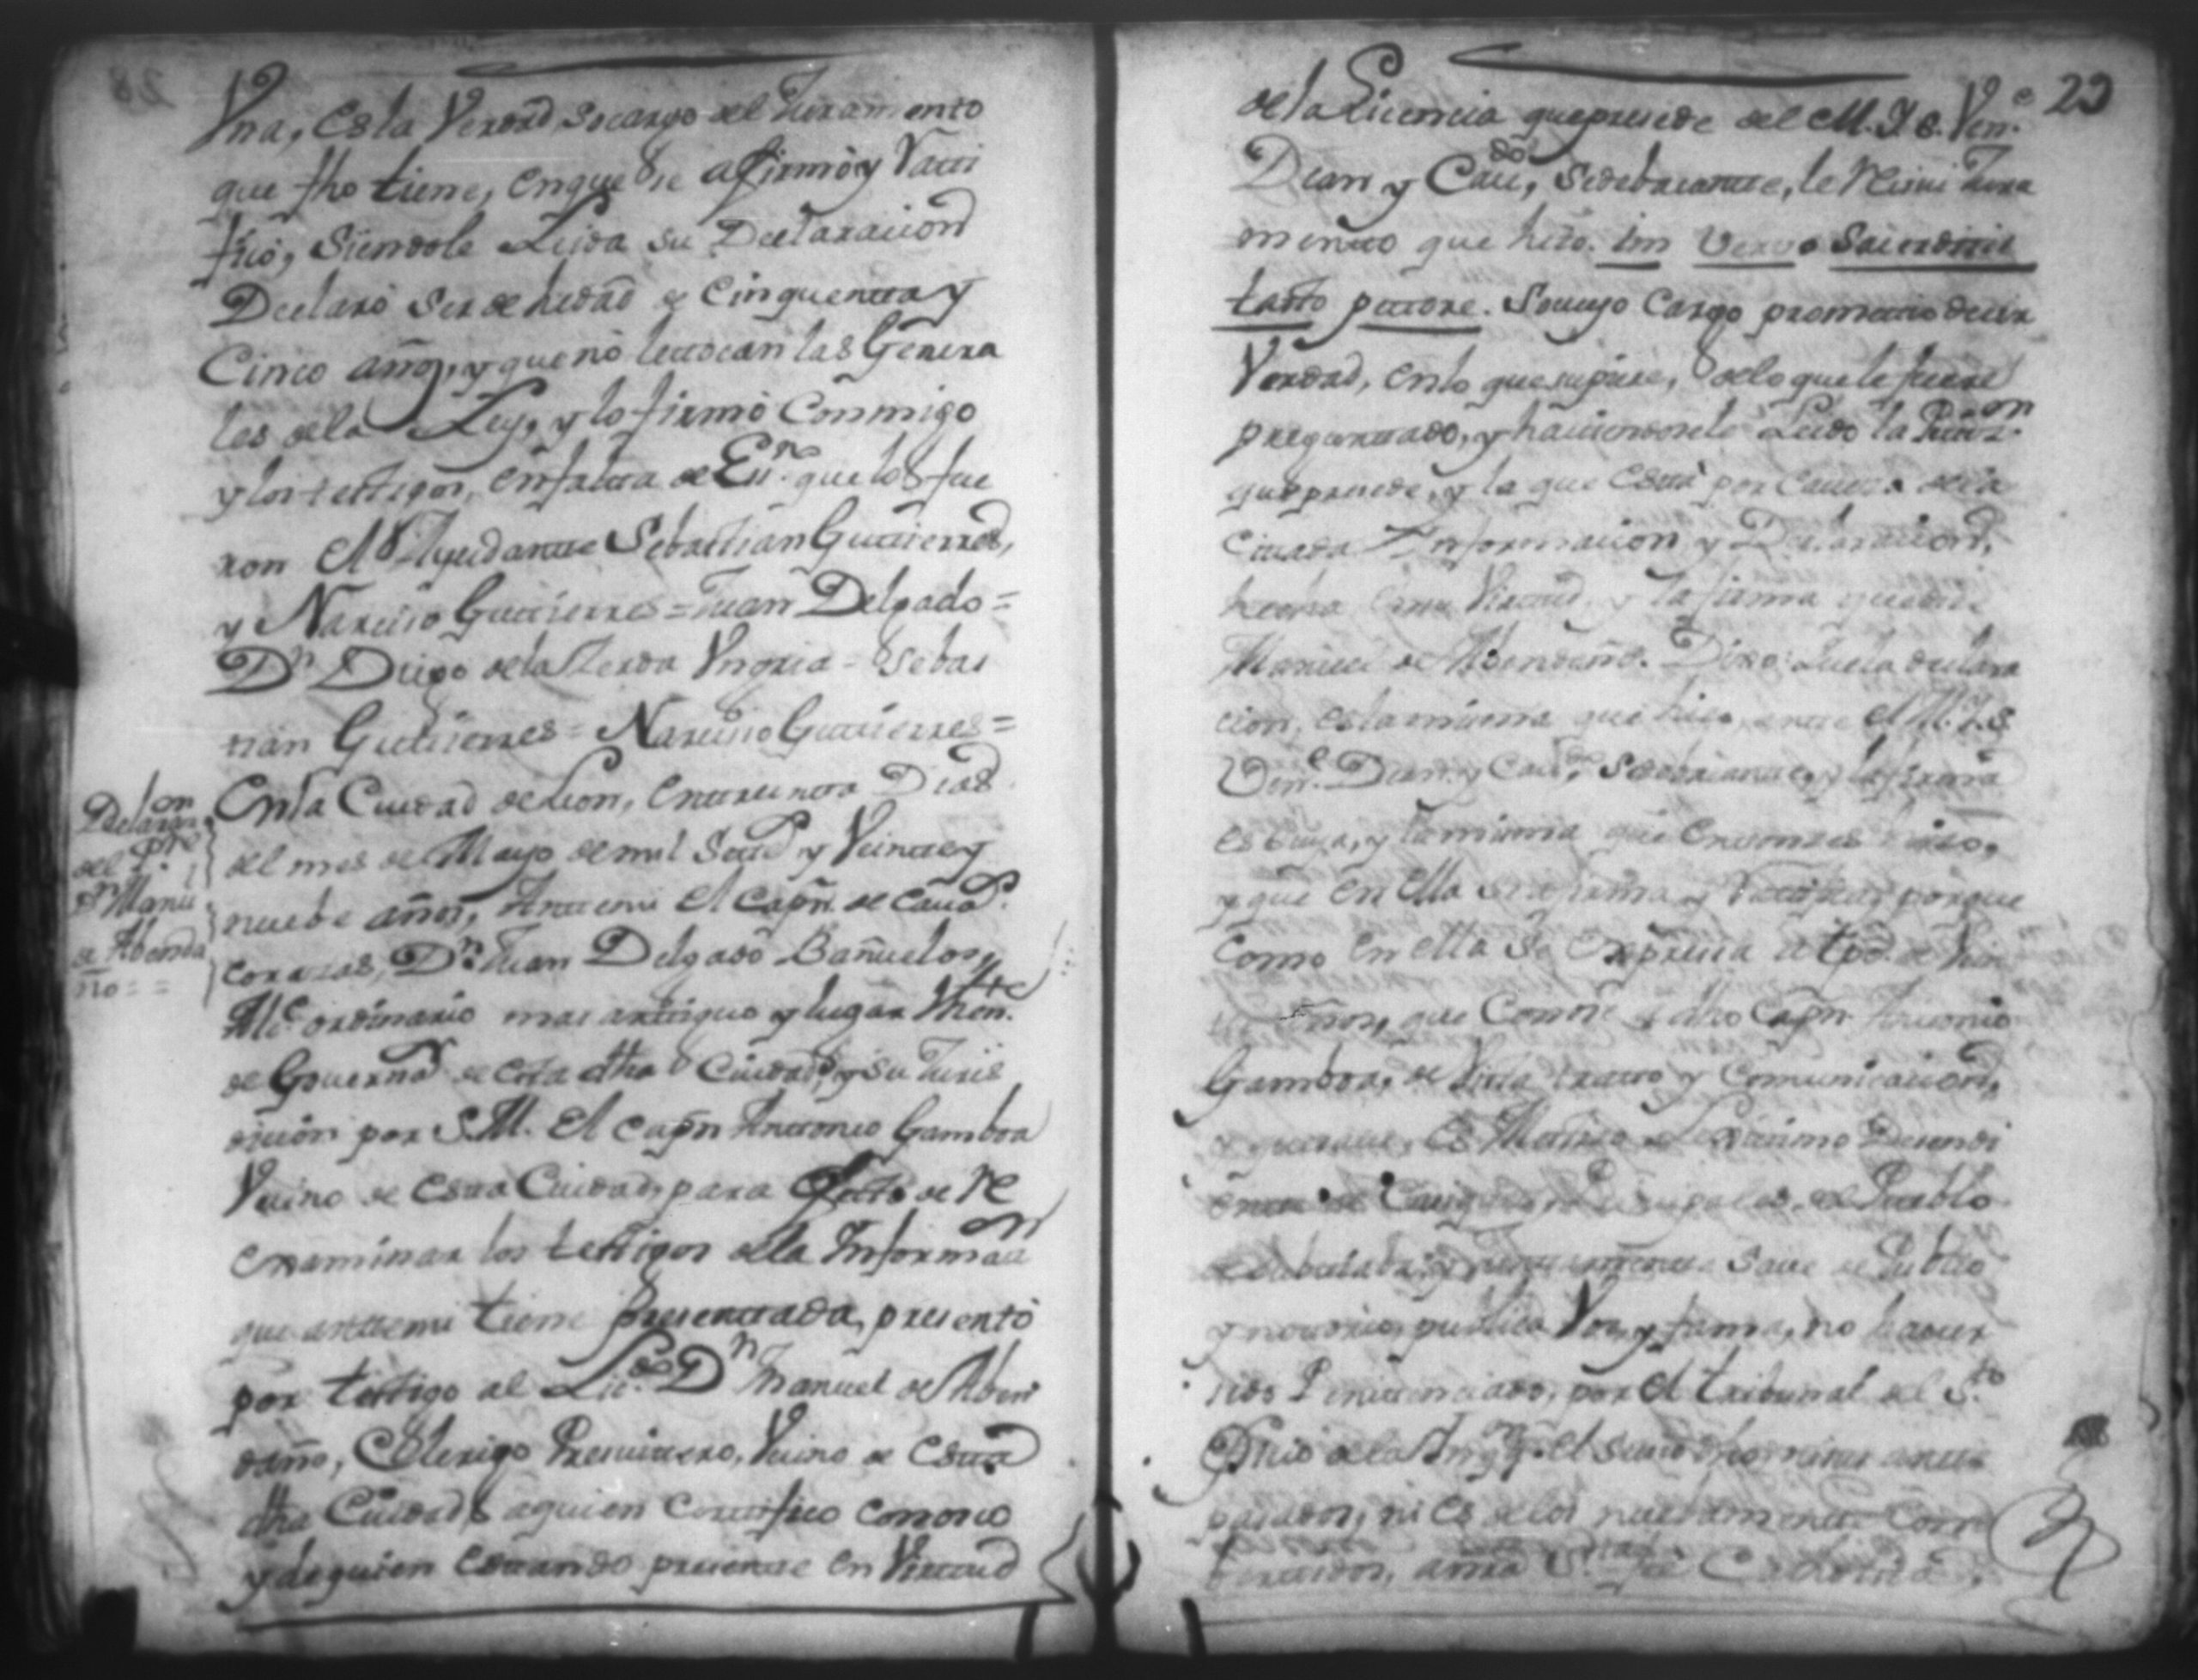 Vna, es la Verdad socargo del Juramento
que fho tiene, enque se afirmò y Ratti
ficó, Siendole Leyda su Declaracion
Declaró ser de hedad de Cinquenta y
Cinco años, y que nò letocan las Genera
les dela Ley, y lo firmò Conmigo
y los testigos, enfalta de Essno. que lo fue
ron el Ayudante Sebastian Gutierres,
y Narciso Gutierres = Juan Delgado =
Dn Diego dela Zerda Ynqria = Sebas
tian Gutierres = Narciso Gutierres =
Enla Ciudad de Leon, entreinta Dias
del mes de Mayo de mil Settd y Veinte y
nuebe años, Antemi el Capn. de Cauas.
corazas, Dn. Juan Delgado Bañuelos,
Alce ordinario mas antiguo y lugar thente.
de Governd de esta dha Ciudad, y su Juris
dicion por S.M. el Capn Antonio Gamboa
Vecino de esta Ciudad, para efecto de re
examinar los testigos dela Informaon
que antemi tiene presentada, presentò
por testigo al Licdo. Dn Manuel de Aben
daño, Clerigo Presvitero, Vecino de esta
dha Ciudad, aquien Certifico conosco
y de quien estando presente en Virtud
Declaron.
del pre
Dn Manul
de Abenda
ño = =
23
dela Licencia que presede del M. Y. S. Vene.
Dean y Caudo, Sedebacante, le reciui Jura
mento que hizo. im Verbo Saserdotis
tacto pectore. So cuyo Cargo prometio decir
Verdad, enlo que supiere, y delo que le fuere
preguntado, y hauiendosele Leido la Peticion.
que presede, y la que està por Caueza dela
Citada Informacion y Declaracion,
hecha en su Virtud, y la firma que dice
Manuel de Abendaño. Dixo: Que la declara
cion, es la misma que hizo, ante el M. Y. S.
Vene. Dean y Caudo, Sedebacante, y la firma
es suya, y la misma que entonces hizo,
y que en ella se afirma y Ratifica, porque
Como en ella se expresa a tpo. de Vein
te años, que Conose a dho Capn Antonio
Gamboa, de Vista trato y Comunicacion,
es Mestizo Lexitimo Desendi
ente de Casiques Prinsipales, del Pueblo
de Subtiaba, y Saue de Publico
y notorio, publica Voz, y fama, no hauer
sido Penitenciado, por el tribunal del Sto.
Oficio dela Inqqn. el suso dho ni sus ante
pasados, ni es delos nuebamente Com
bertidos, anra Sta. feè Catholica,